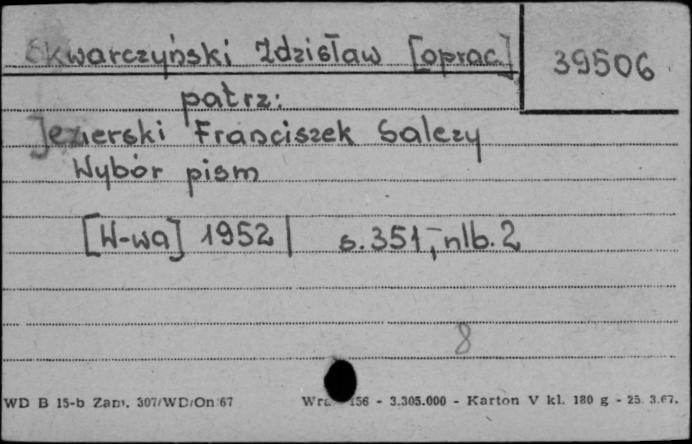 Skwarczyński Zdzisław [oprac.]
39506
patrz:
Jezierski Franciszek Salezy
Wybór pism
[W-wa] 1952 | s. 351, nlb. 2
8
WD B 15-b Zam. 307/WD/On/67 156 - 3.305.000 - Karton V kl. 180 g - 25. 3.67.